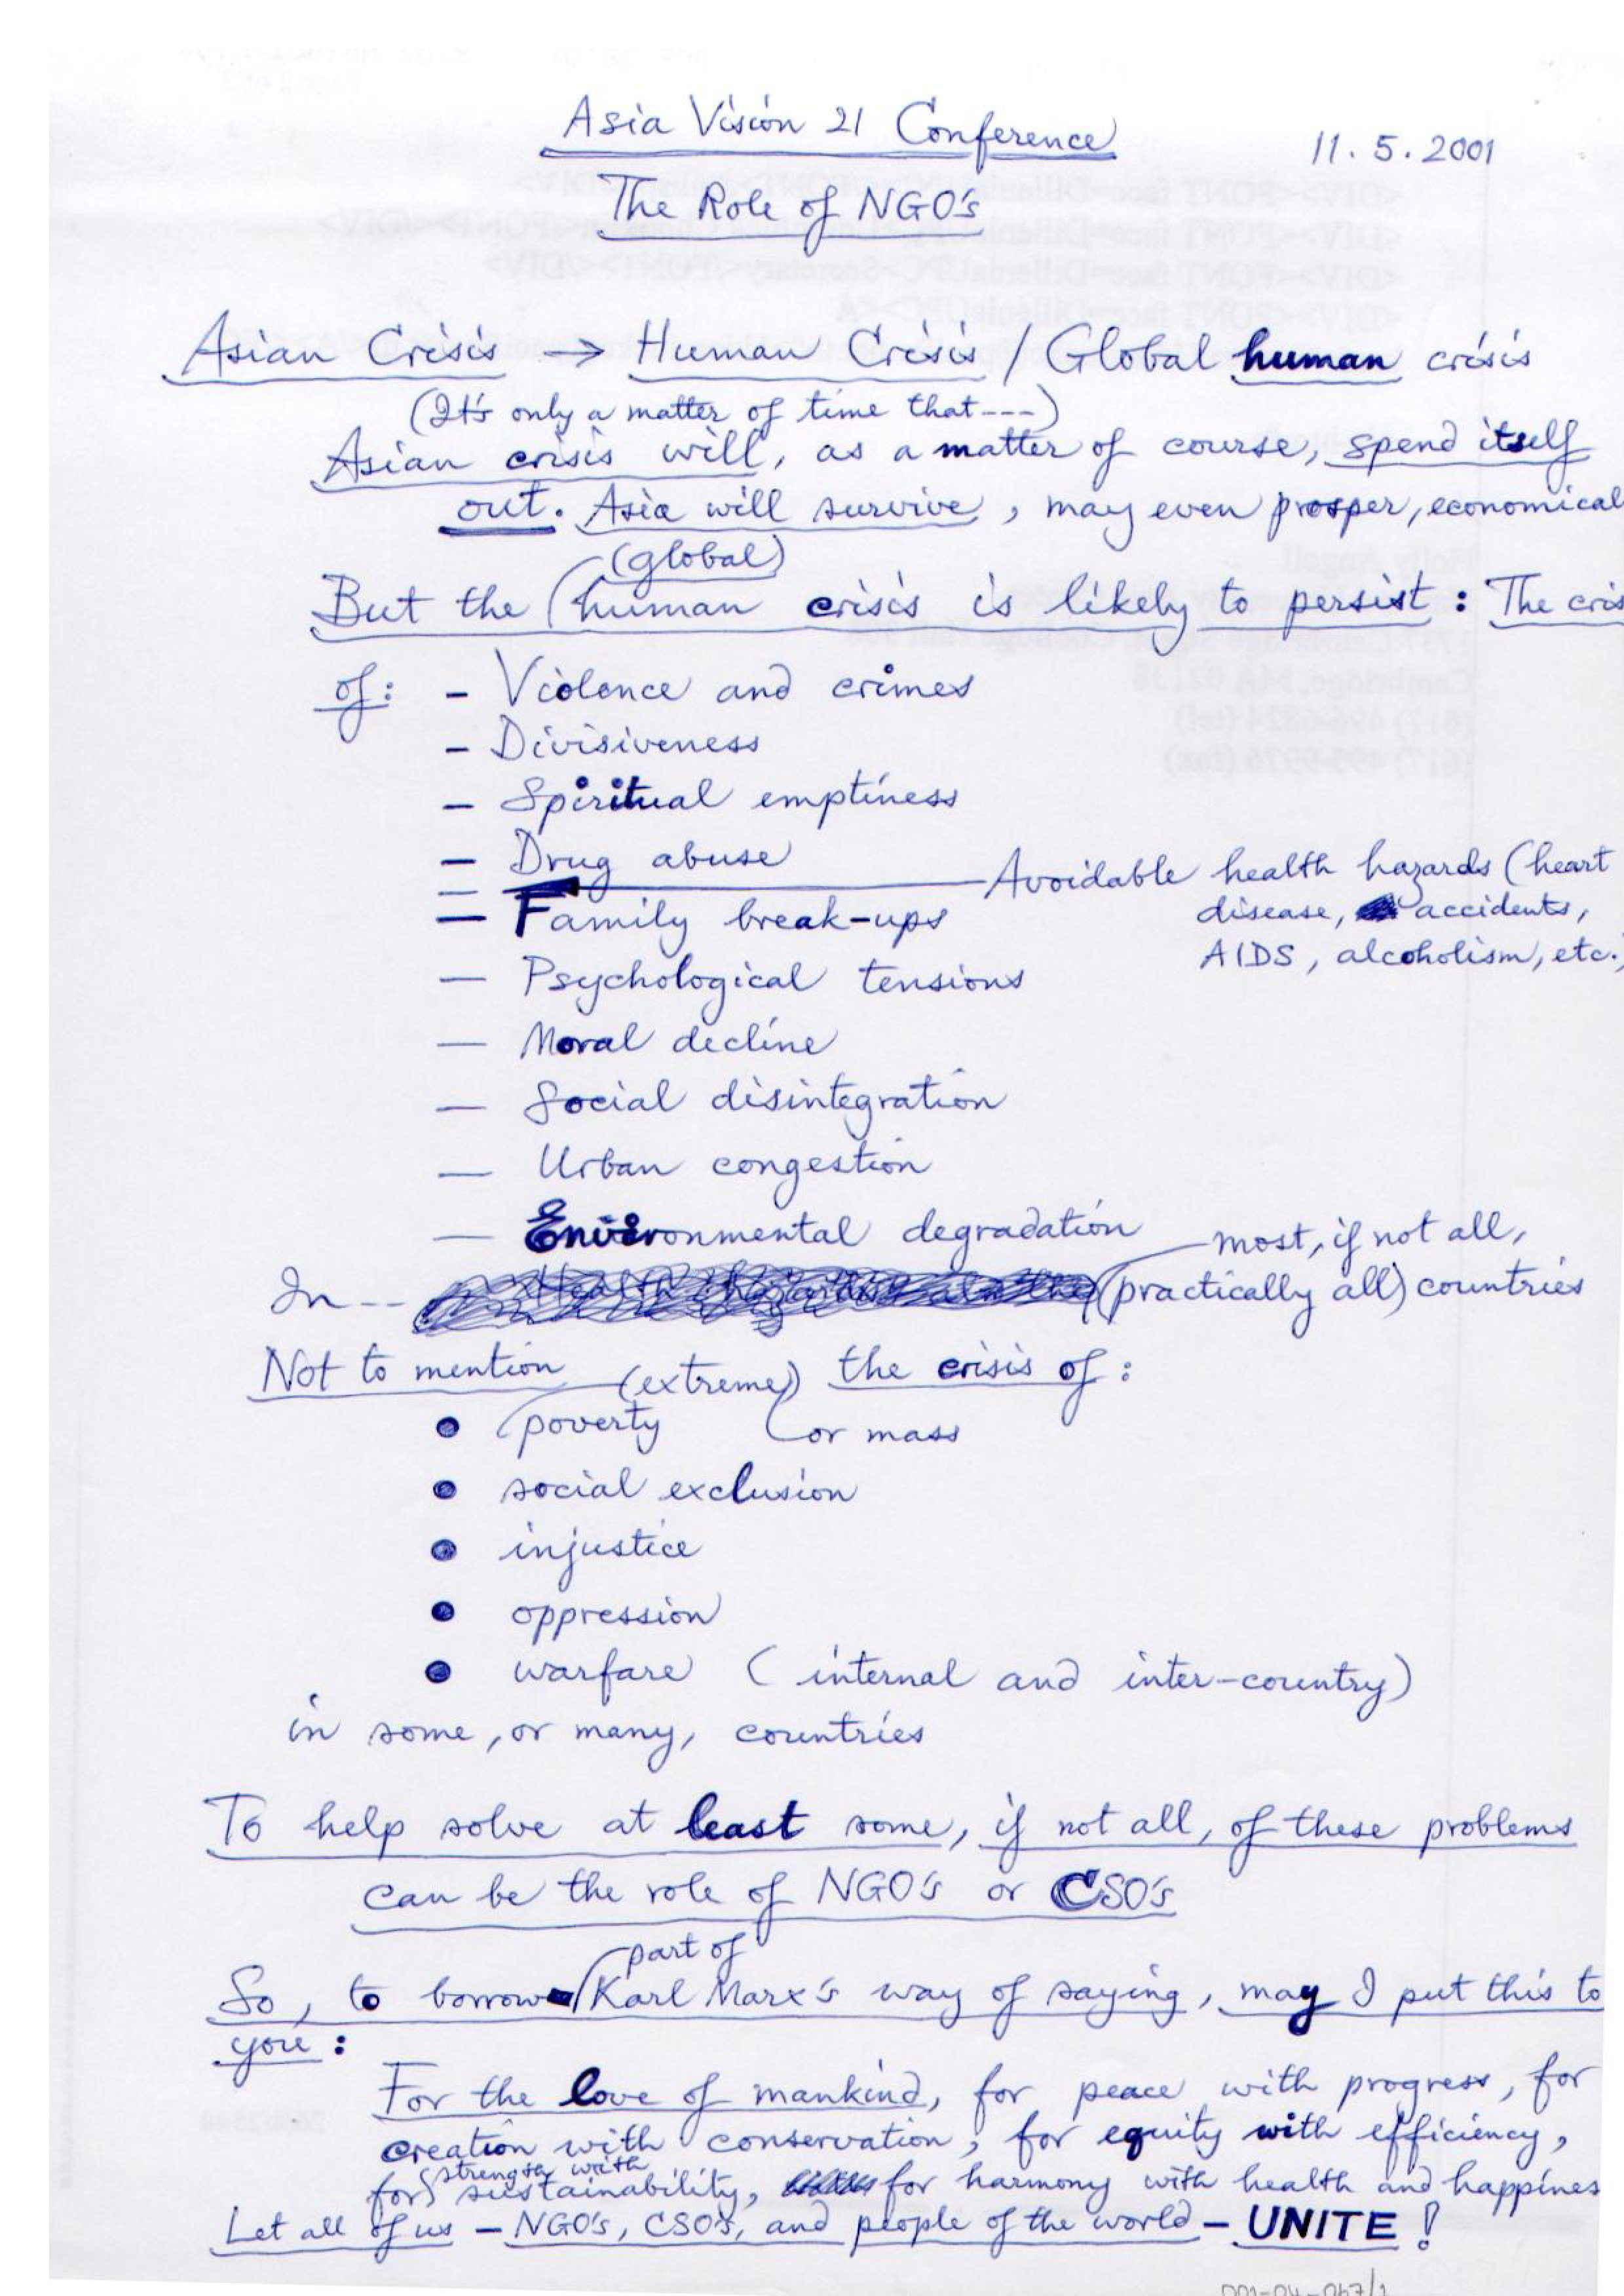 Asia Vision 21 Conference
11.5.2001
The Role of NGO's
Asian Crisis → Human Crisis / Global human crisis
(It's only a matter of time that---)
Asian crisis will, as a matter of course, spend itself
out. Asia will survive, may even prosper, economical
(global)
But the human crisis is likely to persist: The cris
of: - Violence and crimes
- Divisiveness
- Spiritual emptiness
- Drug abuse
Avoidable health hazards (heart
disease, accidents,
AIDS, alcoholism, etc.)
- Family break-ups
- Psychological tensions
- Moral decline
- Social disintegration
- Urban congestion
- Environmental degradation
most, if not all,
In-- (practically all) countries
Not to mention (extreme) the crisis of:
• poverty or mass
• social exclusion
• injustice
• oppression
• warfare (internal and inter-country)
in some, or many, countries
To help solve at least some, if not all, of these problems
can be the role of NGO's or CSO's
part of
So, to borrow Karl Marx's way of saying, may I put this to
you:
For the love of mankind, for peace with progress, for
creation with conservation, for equity with efficiency,
strength with
for sustainability, for harmony with health and happines
Let all of us - NGO's, CSO's, and people of the world - UNITE!